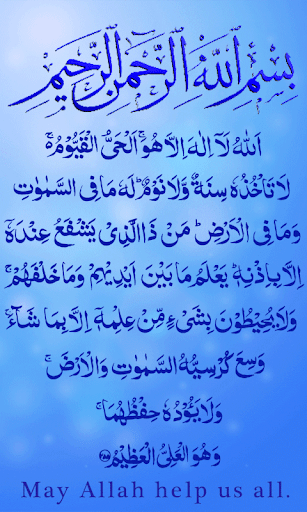 بِسْمِ اللهِ الرَّحْمٰنِ الرَّحِيْمِ
اَللهُ لَآ اِلٰهَ اِلَّا هُوَۚ اَلْحَیُّ الْقَیُّوْمُ ۚ۬
لَا تَاْخُذُهٗ سِنَةٌ وَّلَا نَوْمٌ ؕ لَهٗ مَا فِی السَّمٰوٰتِ
وَمَا فِی الْاَرْضِ ؕ مَنْ ذَا الَّذِیْ یَشْفَعُ عِنْدَهٗۤ
اِلَّا بِاِذْنِهٖ ؕ یَعْلَمُ مَا بَیْنَ اَیْدِیْهِمْ وَمَا خَلْفَهُمْ ۚ
وَلَا یُحِیْطُوْنَ بِشَیْءٍ مِّنْ عِلْمِهٖۤ اِلَّا بِمَا شَآءَ ۚ
وَسِعَ كُرْسِیُّهُ السَّمٰوٰتِ وَالْاَرْضَ ۚ
وَلَا یَـُٔوْدُهٗ حِفْظُهُمَا ۚ
وَهُوَ الْعَلِیُّ الْعَظِیْمُ ﴿۲۵۵﴾
May Allah help us all.